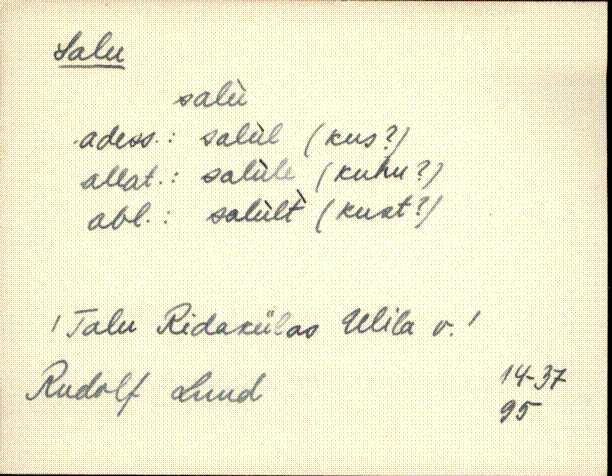 Salu
salù
adess.: salùl (kus?)
allat.: salùle (kuhu?)
abl.: salùlt (kust?)
! Talu Ridakülas Ulila v. !
Rudolf Luud
14-37
95